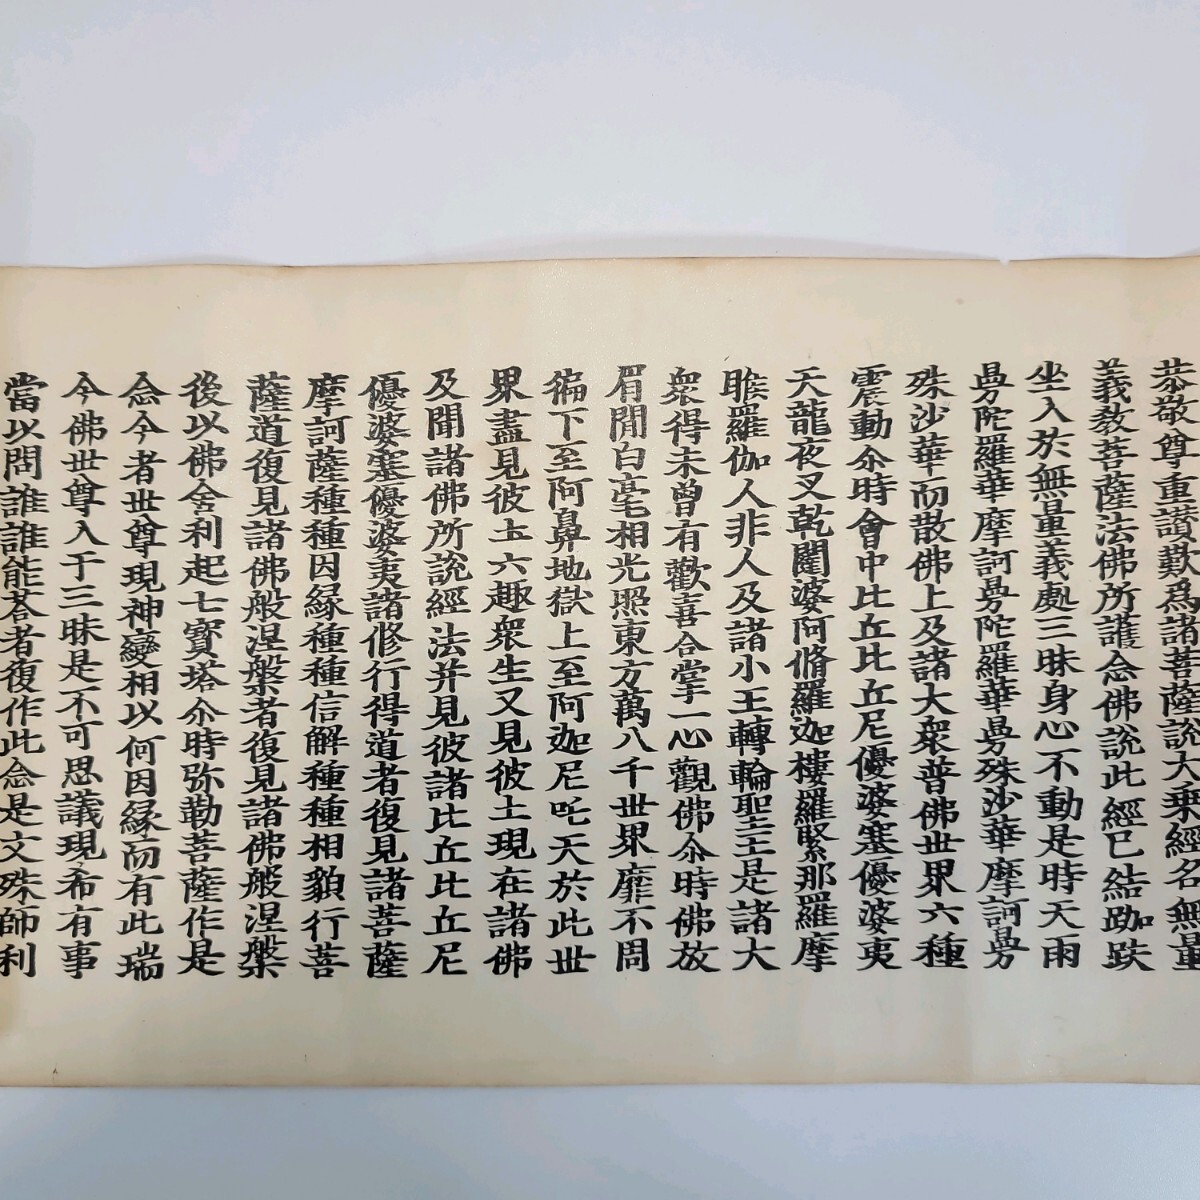 恭敬尊重讃歎為諸菩薩說大乗經名無量
義教菩薩法佛所護念佛說此經已結跏趺
坐入於無量義處三昧身心不動是時天雨
曼陀羅華摩訶曼陀羅華曼殊沙華摩訶曼
殊沙華而散佛上及諸大衆普佛世界六種
震動尒時會中比丘比丘尼優婆塞優婆夷
天龍夜叉乾闥婆阿脩羅迦樓羅緊那羅摩
睺羅伽人非人及諸小王轉輪聖王是諸大
衆得未曾有歡喜合掌一心觀佛尒時佛放
眉間白毫相光照東方萬八千世界靡不周
徧下至阿鼻地獄上至阿迦尼吒天於此世
界盡見彼土六趣衆生又見彼土現在諸佛
及聞諸佛所說經法并見彼諸比丘比丘尼
優婆塞優婆夷諸修行得道者復見諸菩薩
摩訶薩種種因緣種種信解種種相貌行菩
薩道復見諸佛般涅槃者復見諸佛般涅槃
後以佛舍利起七寶塔尒時弥勒菩薩作是
念今者世尊現神變相以何因緣而有此瑞
今佛世尊入于三昧是不可思議現希有事
當以問誰誰能荅者復作此念是文殊師利